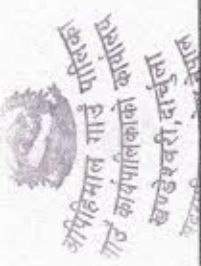 अपिहिमाल गाउँ पालिका
गाउँ कार्यपालिकाको कार्यालय
खण्डेश्वरी, दार्चुला
नेपाल